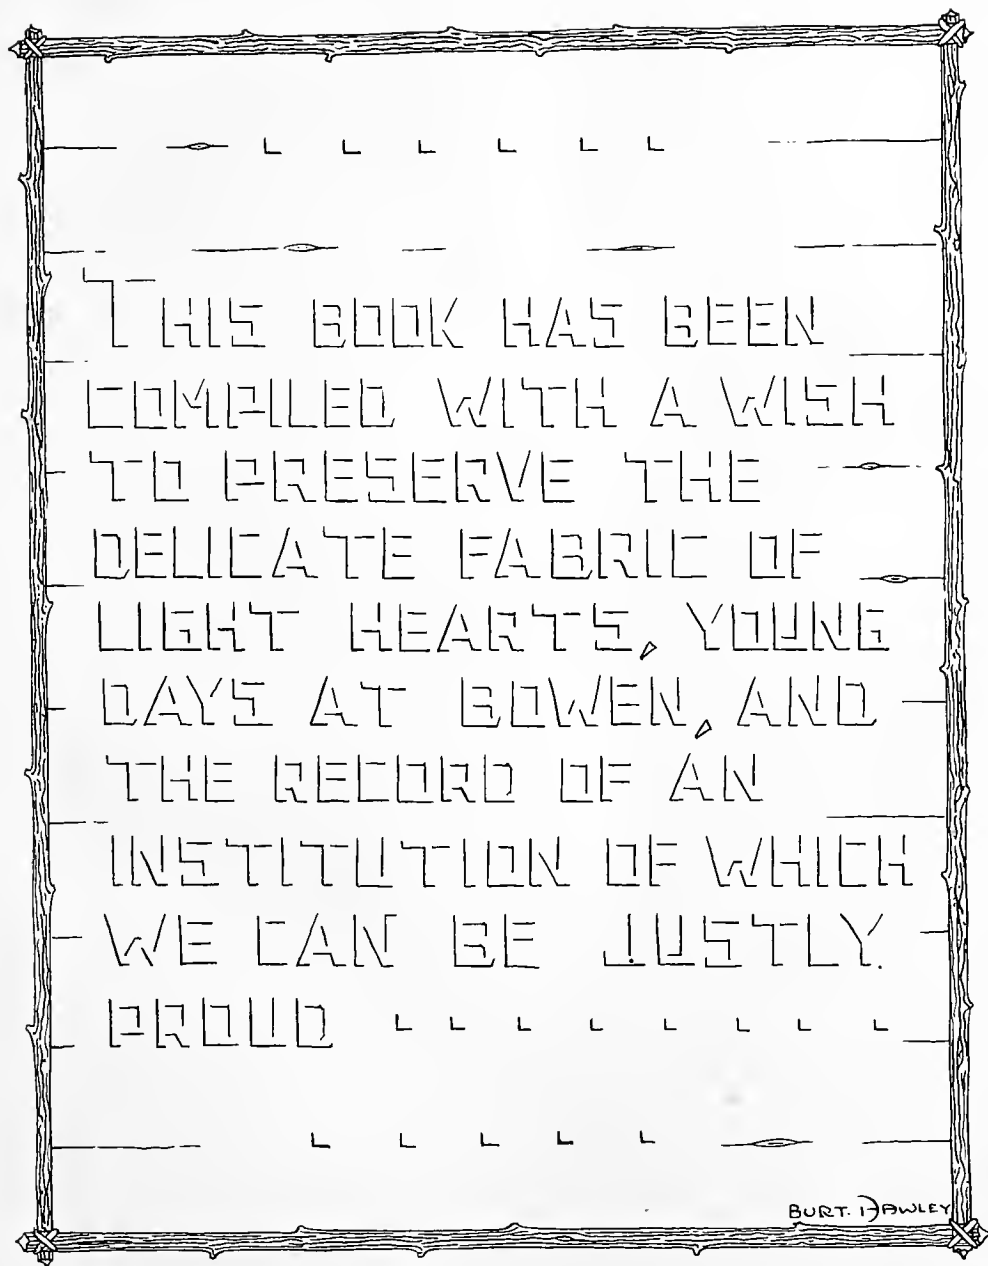 THIS BOOK HAS BEEN
COMPILED WITH A WISH
TO PRESERVE THE
DELICATE FABRIC OF
LIGHT HEARTS, YOUNG
DAYS AT BOWEN, AND
THE RECORD OF AN
INSTITUTION OF WHICH
WE CAN BE JUSTLY
PROUD
BURT. HAWLEY